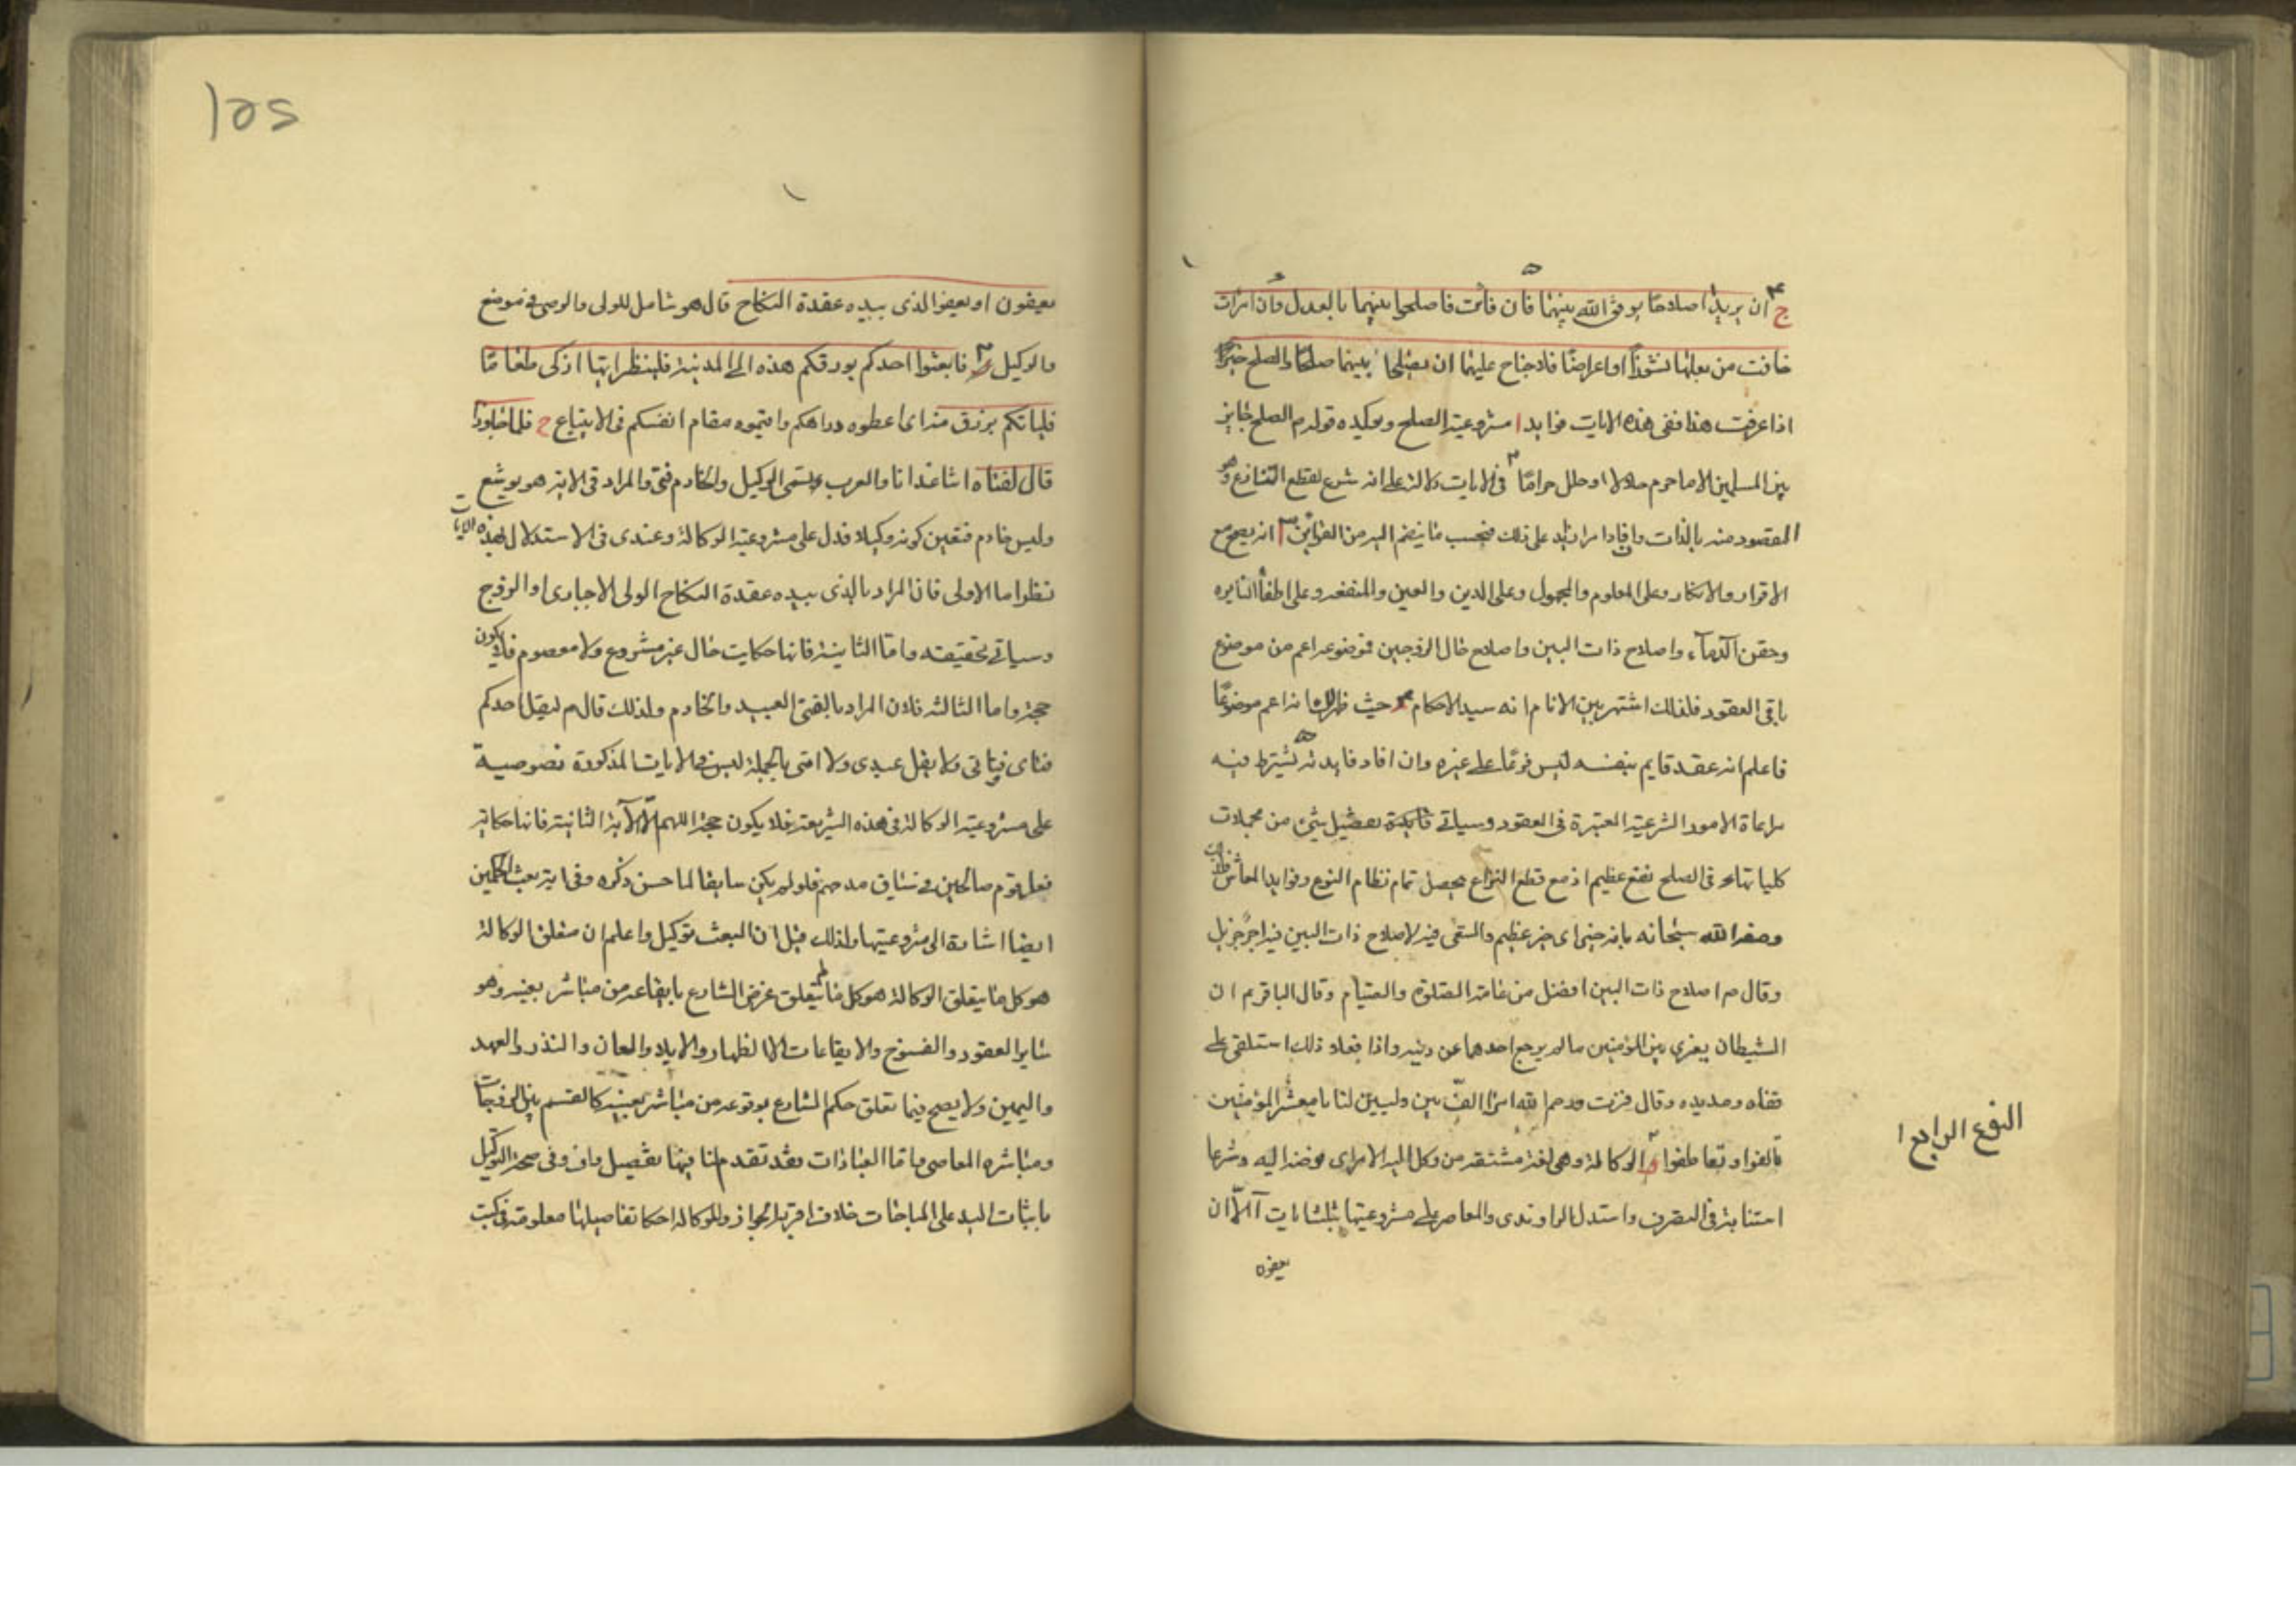 ج ان يريدا اصلاحا يوفق الله بينهما فان فائت فاصلحوا بينهما بالعدل وان امرات
خافت من بعلها نشوزا او اعراضا فلا جناح عليهما ان يصلحا بينهما صلحا والصلح خير
اذا عرفت هذا ففى هذه الايات فوايد ا مشروعية الصلح ويوكيده قوله م الصلح جايز
بين المسلمين الا ما حرم حلالا او حلل حراما فى الايات دلالة على انه شرع لقطع التنازع وهو
المقصود منه بالذات وافاد امرا زايد على ذلك فبحسب ما ينضم اليه من القراين انه يصح مع
الاقرار والانكار وعلى المعلوم والمجهول وعلى الدين والعين والمنفعة وعلى اطفأ النايره
وحقن الدماء واصلاح ذات البين واصلاح حال الزوجين فموضوعه اعم من موضوع
باقى العقود فلذلك اشتهر بين الانام انه سيد الاحكام حيث ظهر انه اعم موضوعا
فاعلم انه عقد قايم بنفسه ليس فرعا على غيره وان افاد فايدته يشترط فيه
مراعاة الامور الشرعية المعتبرة فى العقود وسياتى تفصيل شئ من مجملات
كلياتها فى الصلح نفع عظيم اذ مع قطع النزاع يحصل تمام نظام النوع وفوايد المعاش
وصفه الله سبحانه بانه خير اى خير عظيم والسعى فيه لاصلاح ذات البين فيه اجر جزيل
وقال م اصلاح ذات البين افضل من عامة الصلوة والصيام وقال الباقر م ان
الشيطان يغرى بين المؤمنين ما لم يرجع احدهما عن دينه واذا فعلو ذلك استلقى على
قفاه ومد يده وقال فزت ورحم الله امرا الف بين وليين لنا يا معشر المؤمنين
تالفوا وتعاطفوا الوكالة وهى لغة مشتقة من وكل اليه الامر اى فوضه اليه وشرعا
استنابة فى التصرف واستدل الراوندى والمعاصر على مشروعيتها بثلث ايات ا الا ان
يعفون
النوع الرابع ا
١٥٢
يعفون او يعفو الذى بيده عقدة النكاح قال هو شامل للولى والوصى فى موضع
والوكيل ب فابعثوا احدكم بورقكم هذه الى المدينة فلينظر ايها ازكى طعاما
فلياتكم برزق منه اى اعطوه دراهمكم واقيموه مقام انفسكم فى الابتياع ج فلما جاوزا
قال لفتاه اتنا غدانا والعرب يسمى الوكيل والخادم فتى والمراد فى الاية هو يوشع
وليس خادم فتعين كونه وكيلا فدل على مشروعية الوكالة وعندى فى الاستدلال بهذه الايات
نظر اما الاولى فان المراد بالذى بيده عقدة النكاح الولى الاجبارى او الزوج
وسياتى تحقيقه واما الثانية فانها حكايت حال غير مشروع ولا معصوم فلا يكون
حجة واما الثالثة فلان المراد بالفتى العبيد والخادم ولذلك قال م ليقل احدكم
فتاى وفتاتى ولا يقل عبدى ولا امتى بالجملة ليس فى الايات المذكورة نصوصية
على مشروعية الوكالة فى هذه الشريعة فلا يكون حجة اللهم الا الاية الثانية فانها حكاية
فعل قوم صالحين فى سياق مدحهم فلو لم يكن سايغا لما حسن ذكره وفى اية بعث الحكمين
ايضا اشارة الى مشروعيتها ولذلك قيل ان البعث توكيل واعلم ان متعلق الوكالة
هو كل ما يتعلق الوكالة هو كل ما لم يتعلق غرض الشارع بايقاعه من مباشر بعينه وهو
ساير العقود والفسوخ والايقاعات الا الظهار والايلا والعان والنذر والعهد
واليمين ولا يصح فيما تعلق حكم الشارع بوقوعه من مباشر بعينه كالقسم بين الزوجات
ومباشره المعاصى واما العبادات فقد تقدم لنا فيها تفصيل واف وفى صحة التوكيل
باثبات اليد على المباحات خلاف اقربه الجواز وللوكالة احكا تفاصيلها معلومة فى كتب